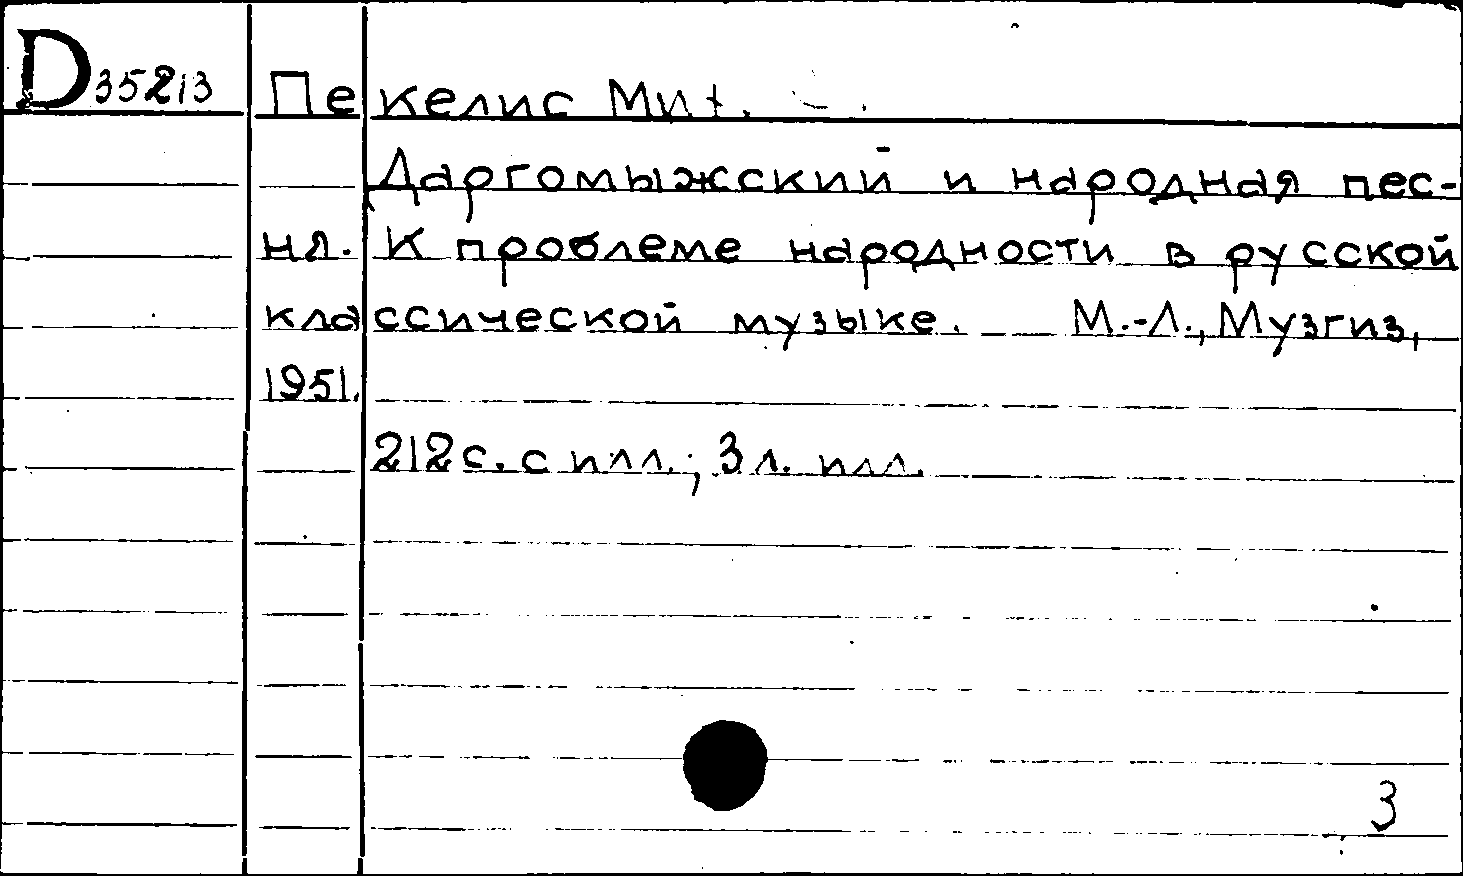 D 35213 Пекелис Ми
Даргомыжский и народная пес-
ня. К проблеме народности в русской
классической музыке. М.-Л., Музгиз,
1951.
212 с. с илл.; 3 л. илл.
3